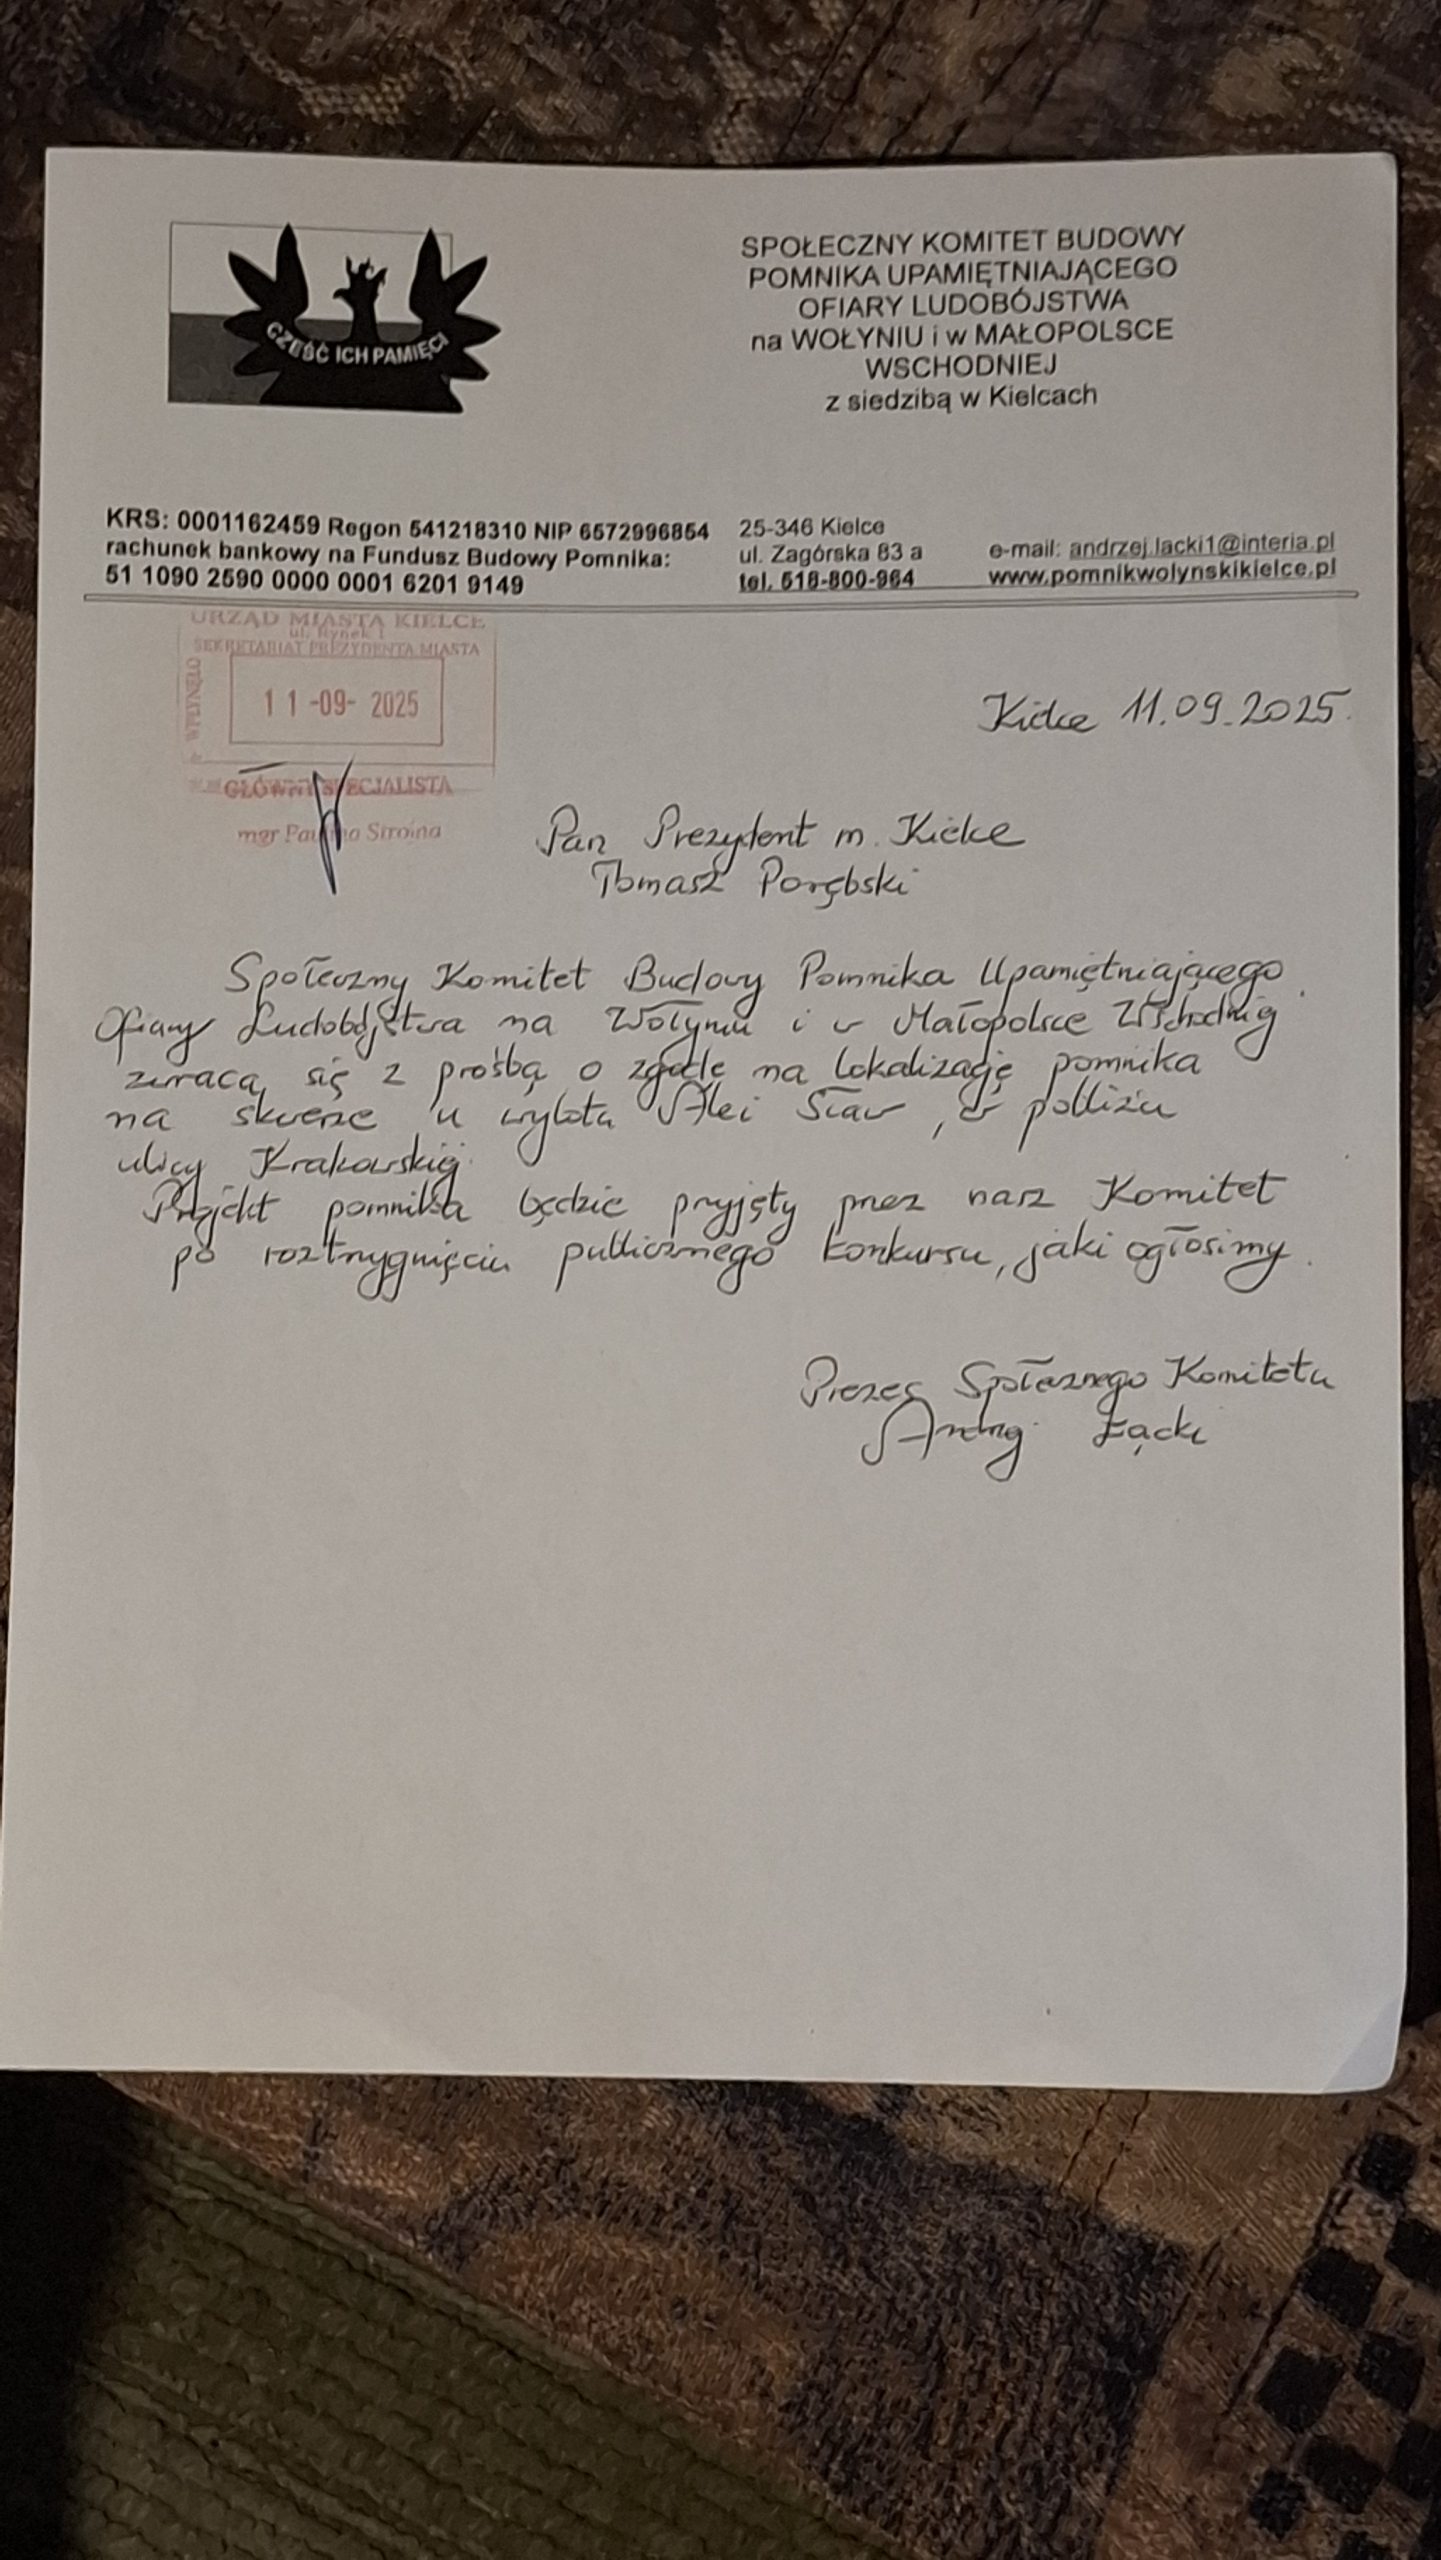 CZEŚĆ ICH PAMIĘCI
SPOŁECZNY KOMITET BUDOWY
POMNIKA UPAMIĘTNIAJĄCEGO
OFIARY LUDOBÓJSTWA
na WOŁYNIU i w MAŁOPOLSCE
WSCHODNIEJ
z siedzibą w Kielcach
KRS: 0001162459 Regon 541218310 NIP 6572996854
rachunek bankowy na Fundusz Budowy Pomnika:
51 1090 2590 0000 0001 6201 9149
25-346 Kielce
ul. Zagórska 83 a
tel. 518-800-964
e-mail: andrzej.lacki1@interia.pl
www.pomnikwolynskikielce.pl
URZĄD MIASTA KIELCE
ul. Rynek 1
SEKRETARIAT PREZYDENTA MIASTA
WPŁYNĘŁO
11-09-2025
GŁÓWNY SPECJALISTA
mgr Paulina Stroina
Kielce 11.09.2025.
Pan Prezydent m. Kielce
Tomasz Porębski
Społeczny Komitet Budowy Pomnika Upamiętniającego
Ofiary Ludobójstwa na Wołyniu i w Małopolsce Wschodniej
zwraca się z prośbą o zgodę na lokalizację pomnika
na skwerze u wylotu Alei Staw, w pobliżu
ulicy Krakowskiej.
Projekt pomnika będzie przyjęty przez nasz Komitet
po roztrzygnięciu publicznego konkursu, jaki ogłosimy.
Prezes Społecznego Komitetu
Andrzej Łącki